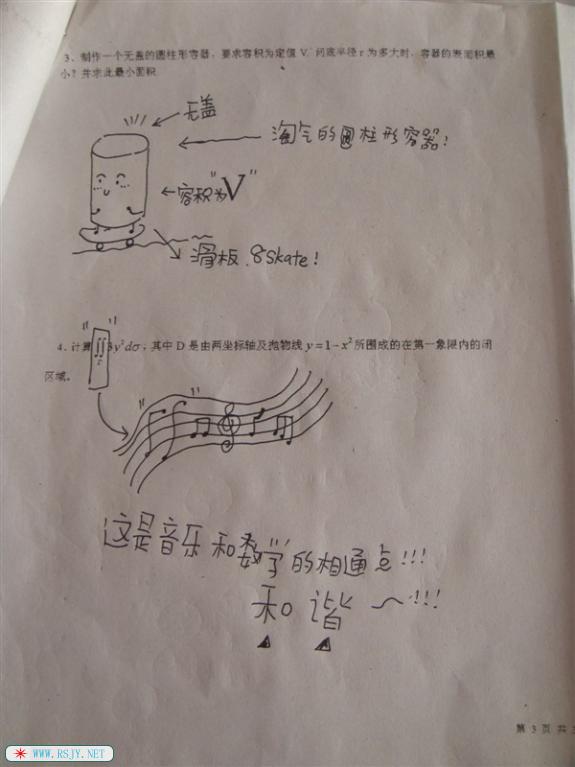 3、制作一个无盖的圆柱形容器，要求容积为定值 V. 问底半径 r 为多大时，容器的表面积最
小？并求此最小面积
无盖
淘气的圆柱形容器！
容积为"V"
滑板 8skate!
4、计算∬3y²dσ，其中 D 是由两坐标轴及抛物线 y=1-x² 所围成的在第一象限内的闭
区域。
这是音乐和数学的相通点!!!
和谐～!!!
第 3 页 共
WWW.RSJY.NET